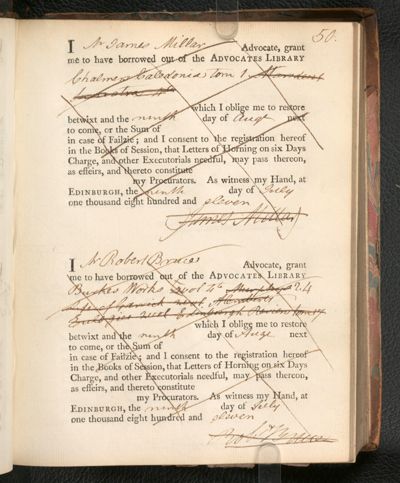 50.
I Mr James Millar Advocate, grant
me to have borrowed out of the ADVOCATES LIBRARY
Chalmers Caledonia tom 1
which I oblige me to restore
betwixt and the ninth day of Augt next
to come, or the Sum of
in case of Failzie; and I consent to the registration hereof
in the Books of Session, that Letters of Horning on six Days
Charge, and other Executorials needful, may pass thereon,
as effeirs, and thereto constitute
my Procurators. As witness my Hand, at
EDINBURGH, the ninth day of July
one thousand eight hundred and eleven
James Millar
I Mr Robert Bruce Advocate, grant
me to have borrowed out of the ADVOCATES LIBRARY
Burkes Works 2 vol 4to
Life of Garrick 2 vol
2 vol Edinburgh Review
which I oblige me to restore
betwixt and the ninth day of Augt next
to come, or the Sum of
in case of Failzie; and I consent to the registration hereof
in the Books of Session, that Letters of Horning on six Days
Charge, and other Executorials needful, may pass thereon,
as effeirs, and thereto constitute
my Procurators. As witness my Hand, at
EDINBURGH, the ninth day of July
one thousand eight hundred and eleven
Robt Bruce